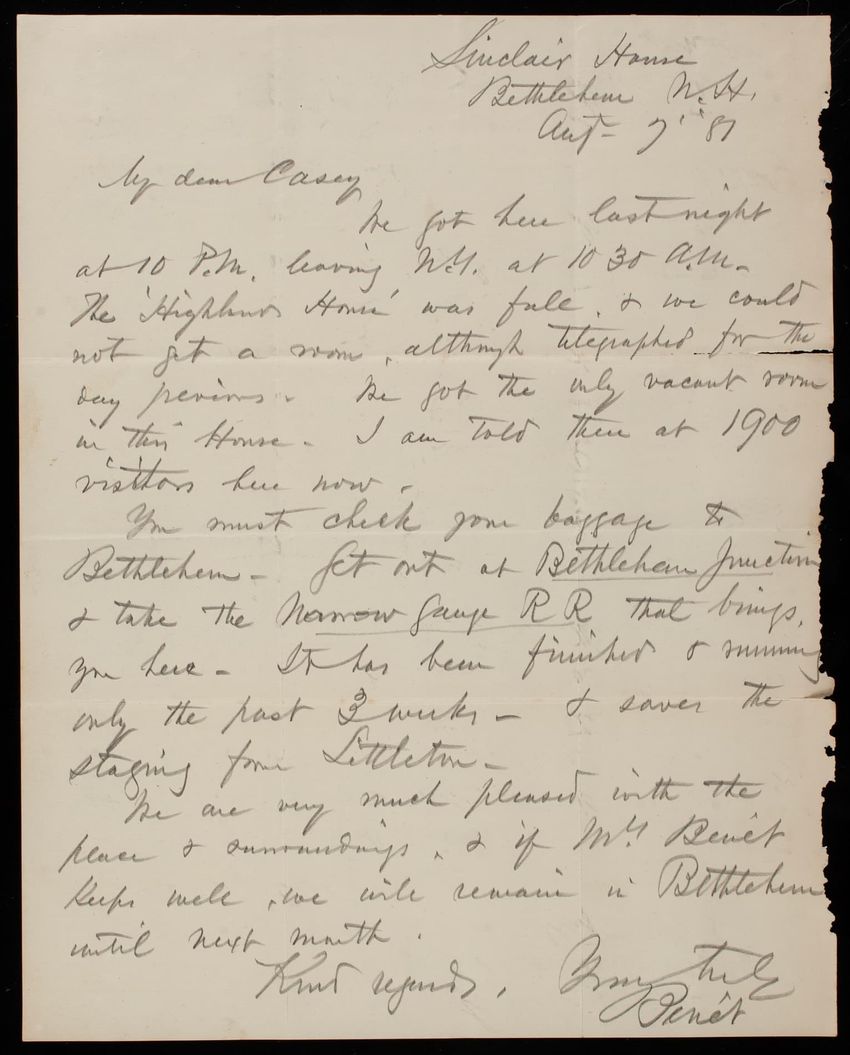 Sinclair House
Bethlehem N.H.
Aug- 7' '81
My dear Casey
We got here last night
at 10 P.M. leaving N.Y. at 10 30 A.M.-
The 'Highland House' was full, & we could
not get a room, although telegraphed for the
day previous - We got the only vacant room
in this House - I am told there at 1900
visitors here now -
You must check your baggage to
Bethlehem - Get out at Bethlehem Junction
& take the Narrow Gauge R R that brings
you here - It has been finished & running
only the past 3 weeks - & saves the
staging from Littleton -
We are very much pleased with the
place & surroundings, & if Mrs Benét
keeps well, we will remain in Bethlehem
until next month.
Kind regards, Yours truly
Benét